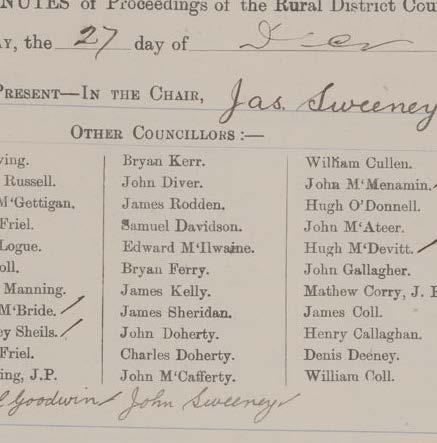 NUTES of Proceedings of the Rural District Cou
AY, the 27 day of Dec
PRESENT—IN THE CHAIR, Jas. Sweeney
OTHER COUNCILLORS :—
ving.
Russell.
M'Gettigan.
Friel.
Logue.
oll.
Manning.
M'Bride.
ey Sheils.
Friel.
ing, J.P.
Bryan Kerr.
John Diver.
James Rodden.
Samuel Davidson.
Edward M'Ilwaine.
Bryan Ferry.
James Kelly.
James Sheridan.
John Doherty.
Charles Doherty.
John M'Cafferty.
William Cullen.
John M'Menamin.
Hugh O'Donnell.
John M'Ateer.
Hugh M'Devitt.
John Gallagher.
Mathew Corry, J. P
James Coll.
Henry Callaghan.
Denis Deeney.
William Coll.
Goodwin John Sweeney